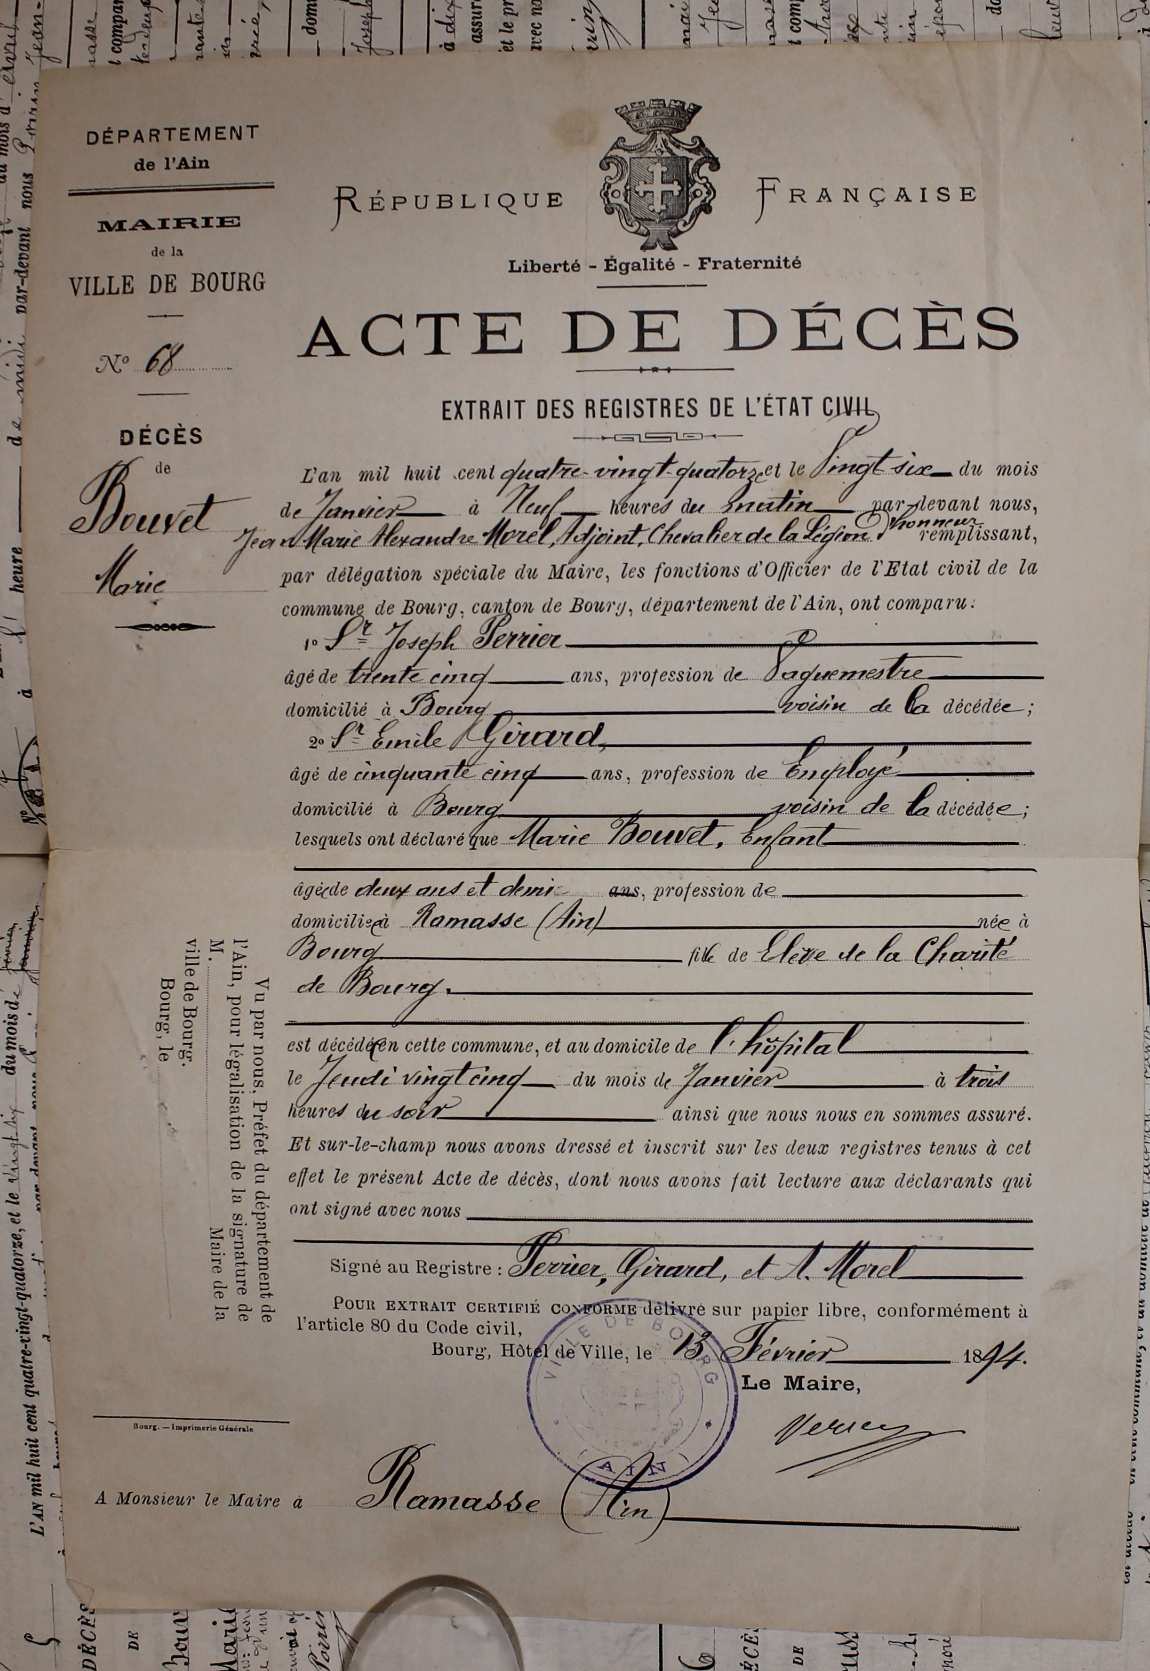 DÉPARTEMENT
de l'Ain
MAIRIE
de la
VILLE DE BOURG
Nº 68
DÉCÈS
de
Bouvet
Marie
RÉPUBLIQUE FRANÇAISE
Liberté - Égalité - Fraternité
ACTE DE DÉCÈS
EXTRAIT DES REGISTRES DE L'ÉTAT CIVIL
L'an mil huit cent quatre-vingt-quatorze et le Vingt six du mois
de Janvier à Neuf heures du matin par-devant nous,
Jean Marie Alexandre Morel, Adjoint, Chevalier de la Légion d'honneur remplissant,
par délégation spéciale du Maire, les fonctions d'Officier de l'Etat civil de la
commune de Bourg, canton de Bourg, département de l'Ain, ont comparu:
1º Sr Joseph Perrier
âgé de trente cinq ans, profession de Vaguemestre
domicilié à Bourg voisin de la décédée;
2º Sr Emile Girard,
âgé de cinquante cinq ans, profession de Employé
domicilié à Bourg voisin de la décédée;
lesquels ont déclaré que Marie Bouvet, Enfant
âgée de deux ans et demi ans, profession de
domiciliée à Ramasse (Ain) née à
Bourg fille de Elève de la Charité
de Bourg.
est décédée en cette commune, et au domicile de l'hôpital
le Jeudi vingt cinq du mois de Janvier à trois
heures du soir ainsi que nous nous en sommes assuré.
Et sur-le-champ nous avons dressé et inscrit sur les deux registres tenus à cet
effet le présent Acte de décès, dont nous avons fait lecture aux déclarants qui
ont signé avec nous
Signé au Registre: Perrier, Girard, et A. Morel
POUR EXTRAIT CERTIFIÉ CONFORME délivré sur papier libre, conformément à
l'article 80 du Code civil,
Bourg, Hôtel de Ville, le 13 Février 1894.
Le Maire,
VILLE DE BOURG
(AIN)
Vu par nous, Préfet du département de
l'Ain, pour légalisation de la signature de
M. Maire de la
ville de Bourg.
Bourg, le
Bourg. — Imprimerie Générale
A Monsieur le Maire à Ramasse (Ain)
L'AN mil huit cent quatre-vingt-quatorze, et le vingt six du mois de
DÉCÈS
DE